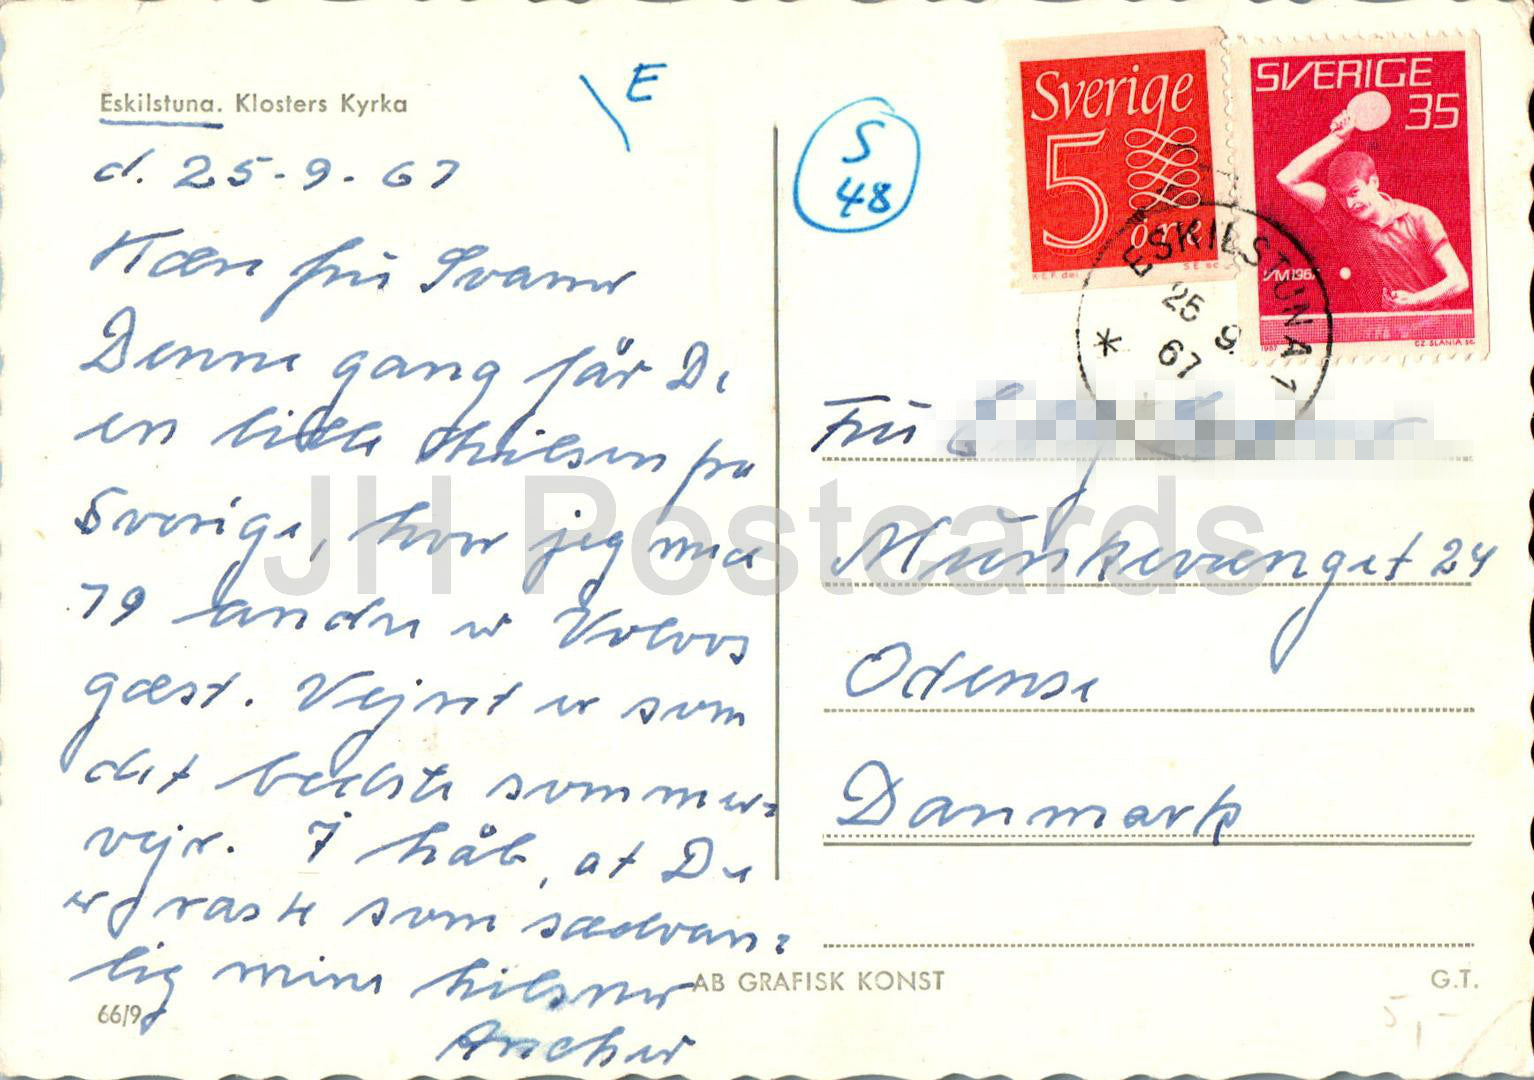 Eskilstuna. Klosters Kyrka
E
d. 25-9-67
Kære fru Svarrer
Denne gang får De
en lille hilsen fra
Sverige, hvor jeg med
79 andre er Volvos
gæst. Vejret er som
det bedste sommer=
vejr. I håb, at De
er rask som sædvan=
lig mine hilsner
Ancher
66/9
S
48
Sverige
5
öre
K.E.F. del.
S.E. sc.
SVERIGE
35
VM 1967
1967
CZ. SLANIA sc.
ESKILSTUNA 1
25 9.
67
*
Fru
Munkevænget 24
Odense
Danmark
AB GRAFISK KONST
G.T.
5,-
JH Postcards